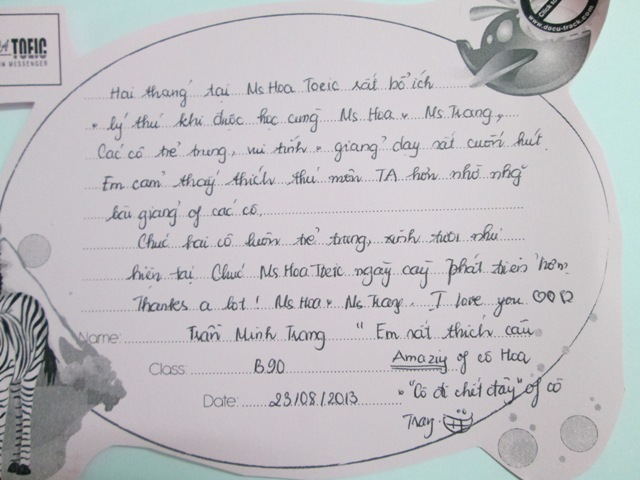 TOEIC
MESSENGER
Click to
www.docu-track.com
Hai tháng tại Ms Hoa Toeic rất bổ ích
& lý thú khi được học cùng Ms Hoa & Ms Trang,
Các cô trẻ trung, vui tính & giảng dạy rất cuốn hút.
Em cảm thấy thích thú môn TA hơn nhờ những
bài giảng of các cô.
Chúc hai cô luôn trẻ trung, xinh tươi như
hiện tại. Chúc Ms Hoa Toeic ngày càng phát triển hơn.
Thanks a lot! Ms Hoa & Ms Trang. I love you ♡♡♡
Name: Trần Minh Trang "Em rất thích câu
Class: B90 Amazing of cô Hoa
Date: 23/08/2013 & "Cô đi chết đây" of cô
Trang.